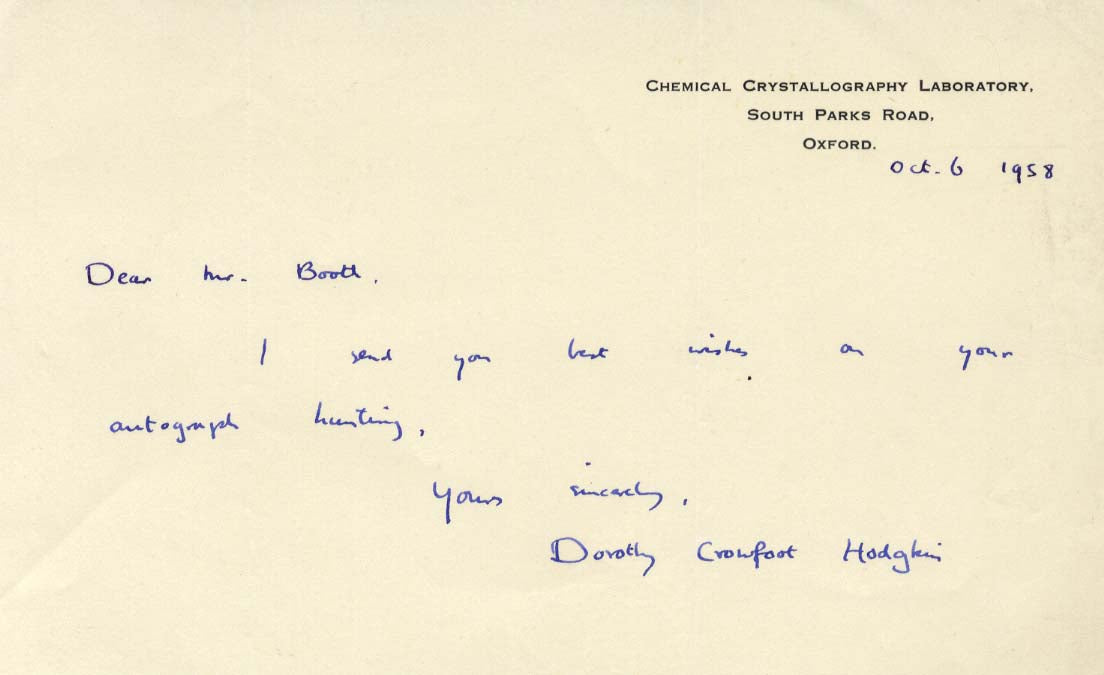 CHEMICAL CRYSTALLOGRAPHY LABORATORY,
SOUTH PARKS ROAD,
OXFORD.
Oct. 6 1958
Dear Mr. Booth,
I send you best wishes on your
autograph hunting,
Yours sincerely,
Dorothy Crowfoot Hodgkin